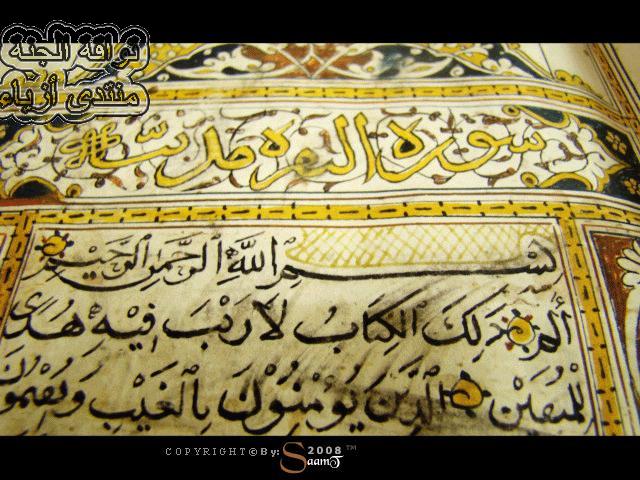 تواقه الجنه
منتدى أزياء
سورة البقرة مدنية
بسم الله الرحمن الرحيم
ألم ذَلِكَ الكِتَابُ لَا رَيْبَ فِيهِ هُدًى
لِلْمُتَّقِينَ الَّذِينَ يُؤْمِنُونَ بِالْغَيْبِ وَيُقِيمُونَ
COPYRIGHT©By: SaamT 2008™